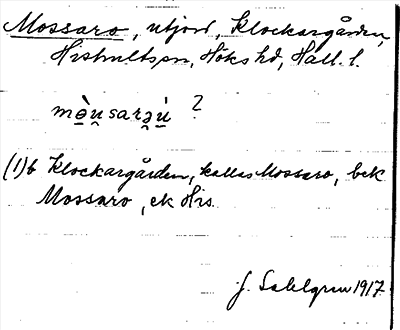 Mossaro, utjord, Klockargården,
Hishultssn, Höks hd, Hall. l.
mòu̯sarəú ?
(1)b Klockargården, kallas Mossaro, bek
Mossaro, ek His
J. Sahlgren 1917.